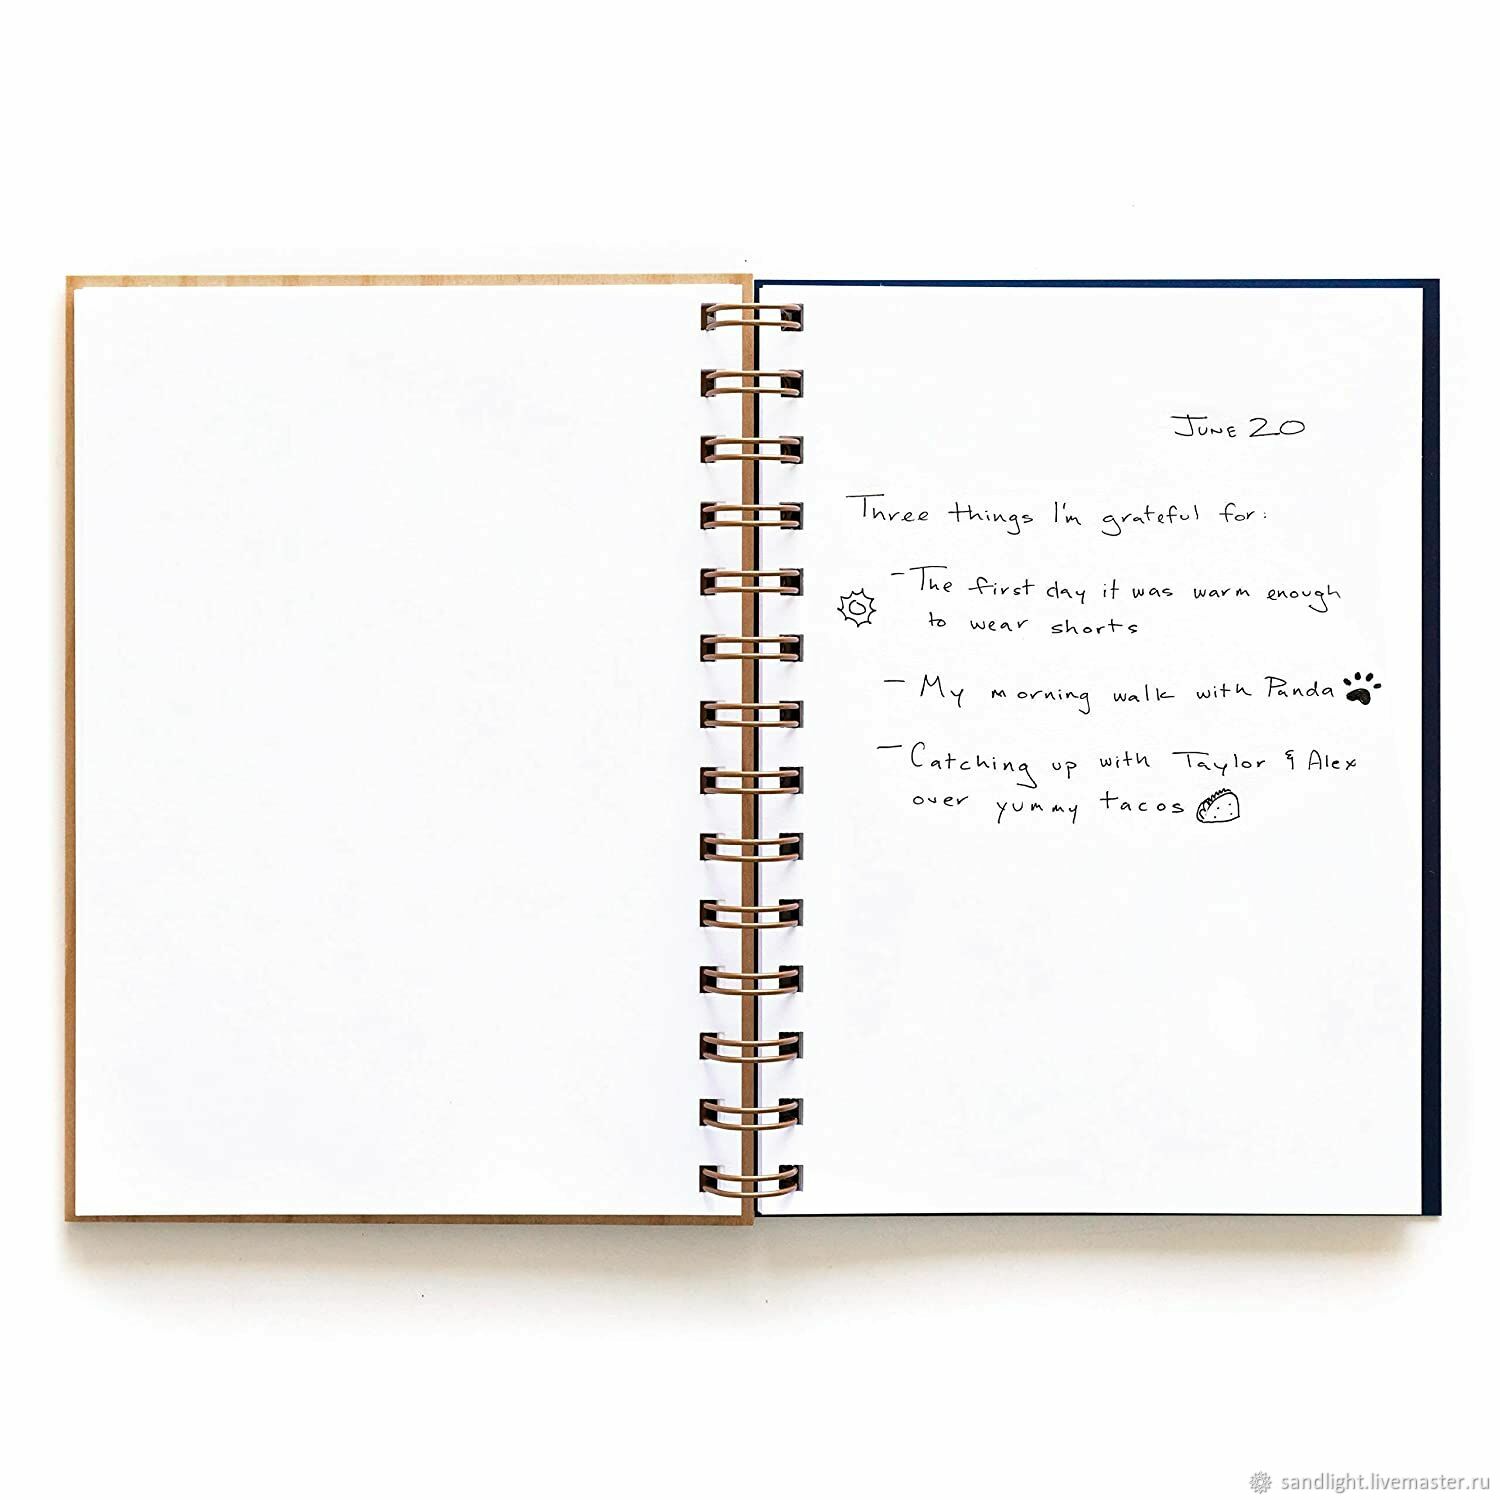 June 20
Three things I'm grateful for:
- The first day it was warm enough
to wear shorts
- My morning walk with Panda
- Catching up with Taylor & Alex
over yummy tacos
sandlight.livemaster.ru